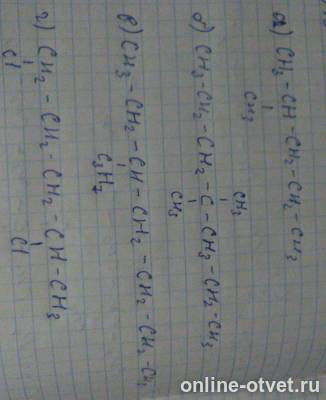 а) CH3 - CH - CH2 - CH2 - CH3
CH3
CH3
б) CH3 - CH2 - CH2 - C - CH3 - CH2 - CH3
CH3
в) CH3 - CH2 - CH - CH2 - CH2 - CH2 - CH3
C3H7
г) CH2 - CH2 - CH2 - CH - CH3
Cl Cl
online-otvet.ru